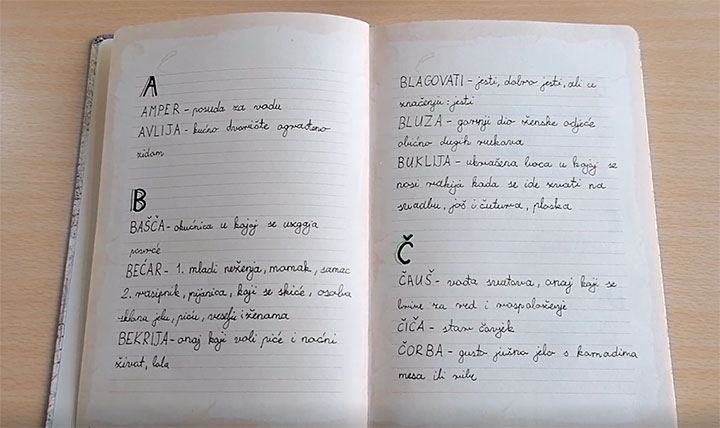 A
AMPER - posuda za vodu
AVLIJA - kućno dvorište ograđeno
zidom
B
BAŠČA - okućnica u kojoj se uzgaja
povrće
BEĆAR - 1. mladi neženja, momak, samac
2. raspnik, pijanica, koji se skiće, osoba
sklona jelu, piću, veselju i ženama
BEKRIJA - onaj koji voli piće i noćni
život, lola
BLAGOVATI - jesti, dobro jesti, ali u
značenju: jesti
BLUZA - gornji dio ženske odjeće
obično dugih rukava
BUKLIJA - ukrašena boca u kojoj se
nosi rakija kada se ide zvati na
svadbu, još i čutura, ploska
Č
ČAUŠ - vođa svatova, onaj koji se
brine za red i raspoloženje
ČIČA - star čovjek
ČORBA - gusto južno jelo s komadima
mesa ili ribe